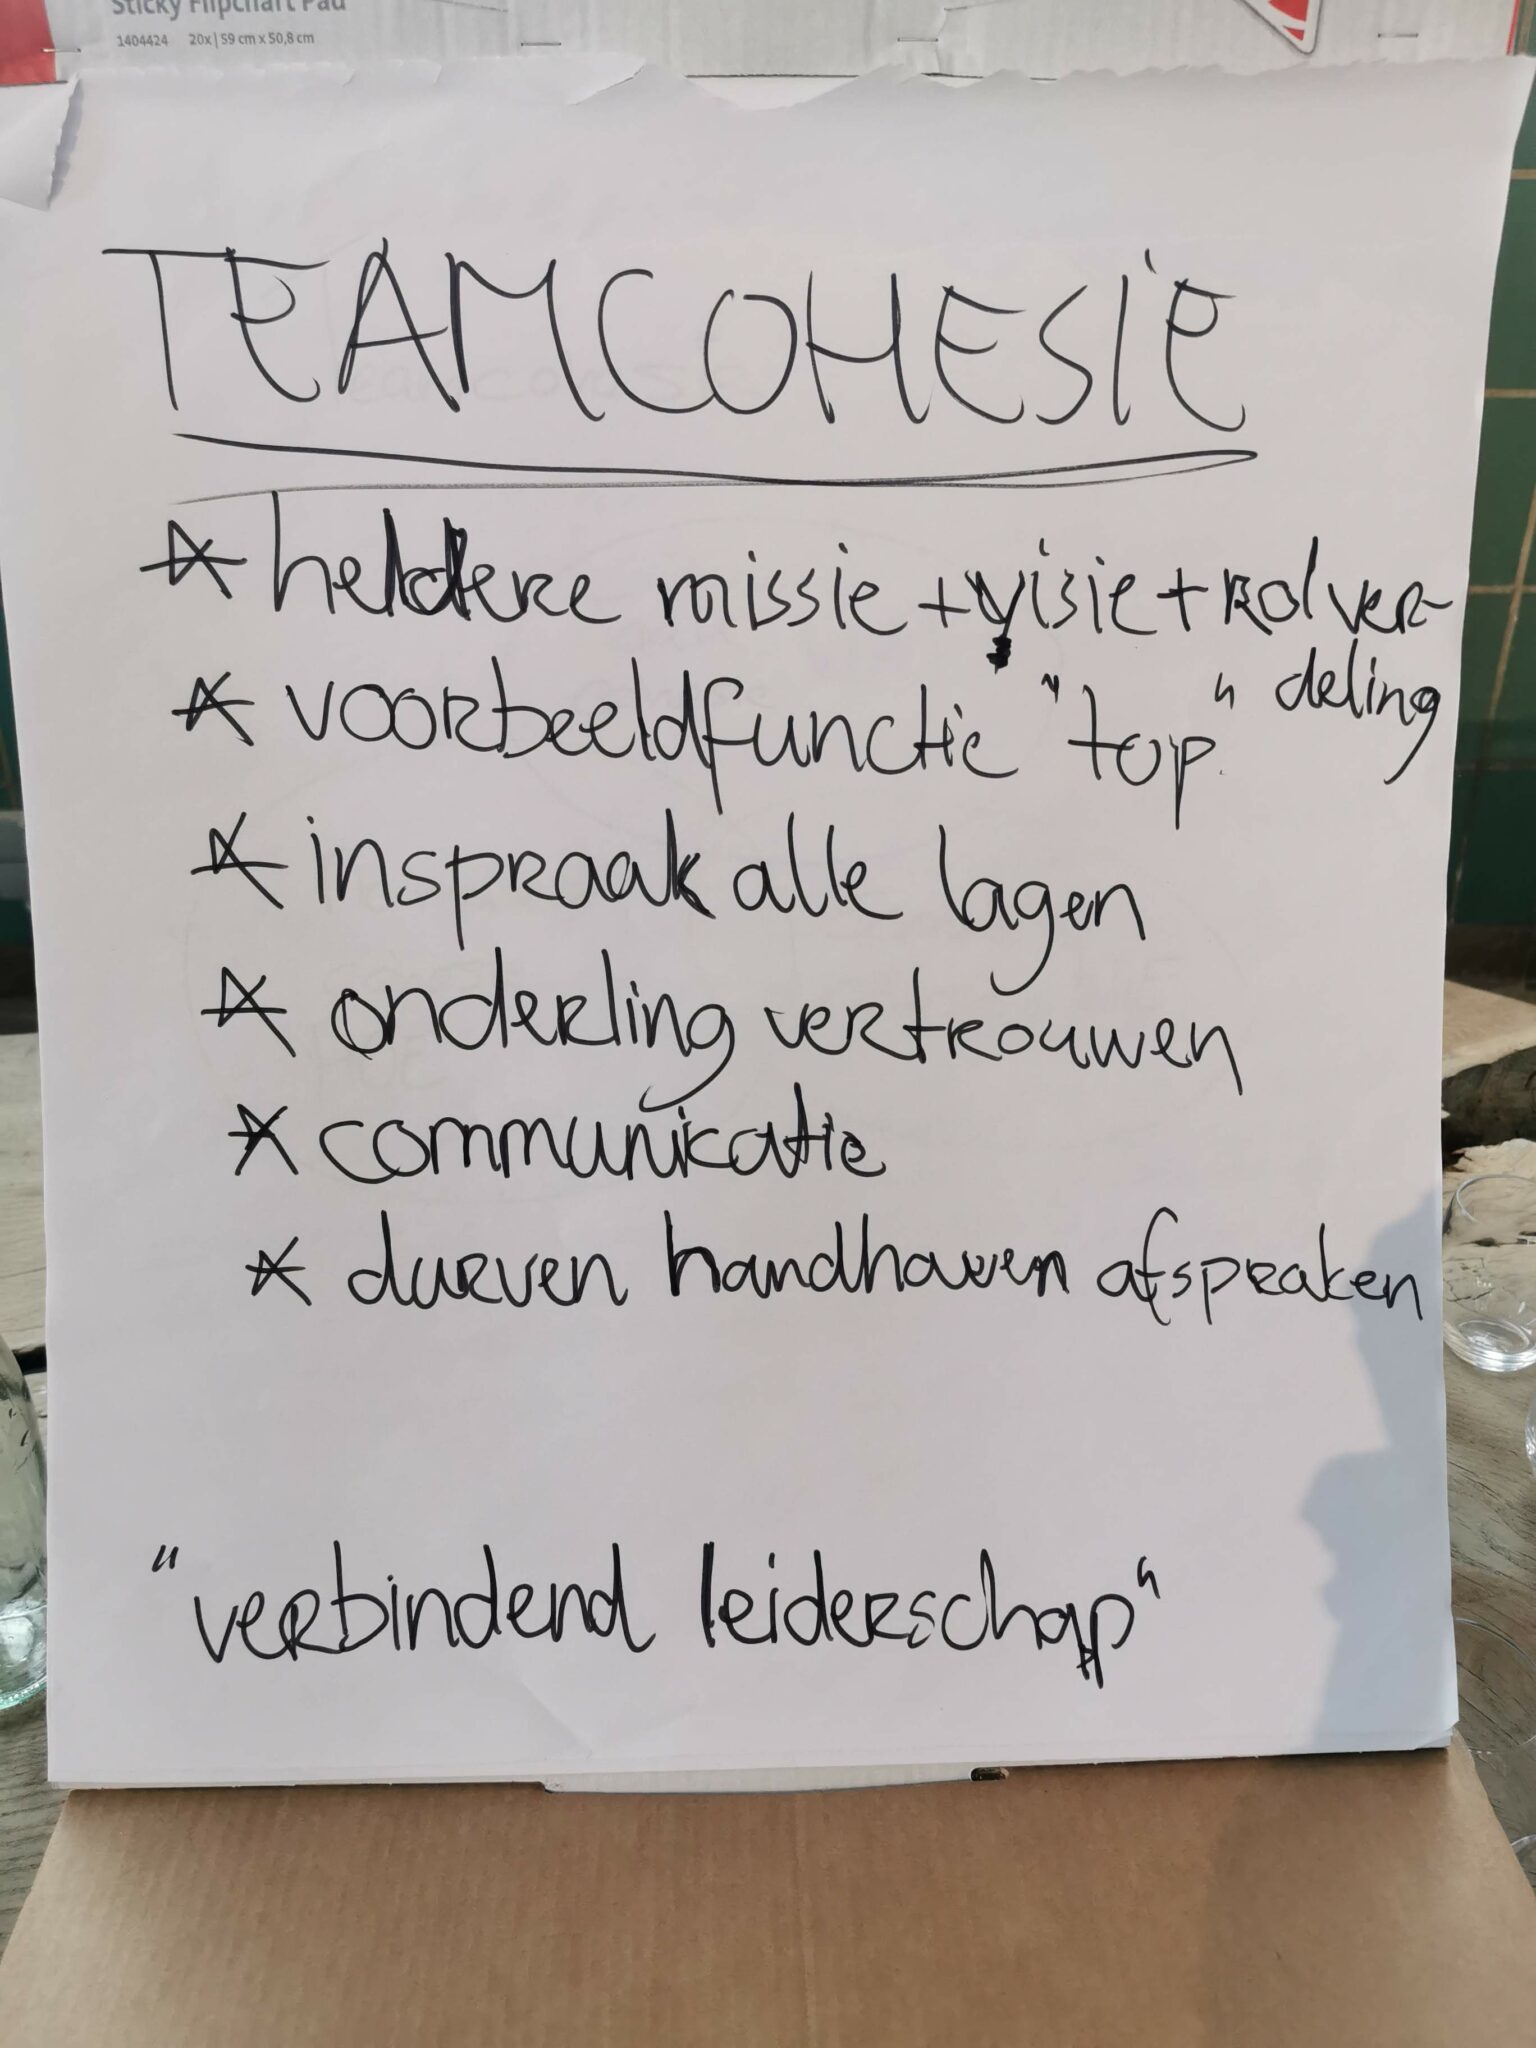 Sticky Flipchart Pad
1404424 20x | 59 cm x 50,8 cm
TEAMCOHESIE
* heldere missie + visie + rolver-
deling
* voorbeeldfunctie "top"
* inspraak alle lagen
* onderling vertrouwen
* communicatie
* durven handhaven afspraken
"verbindend leiderschap"